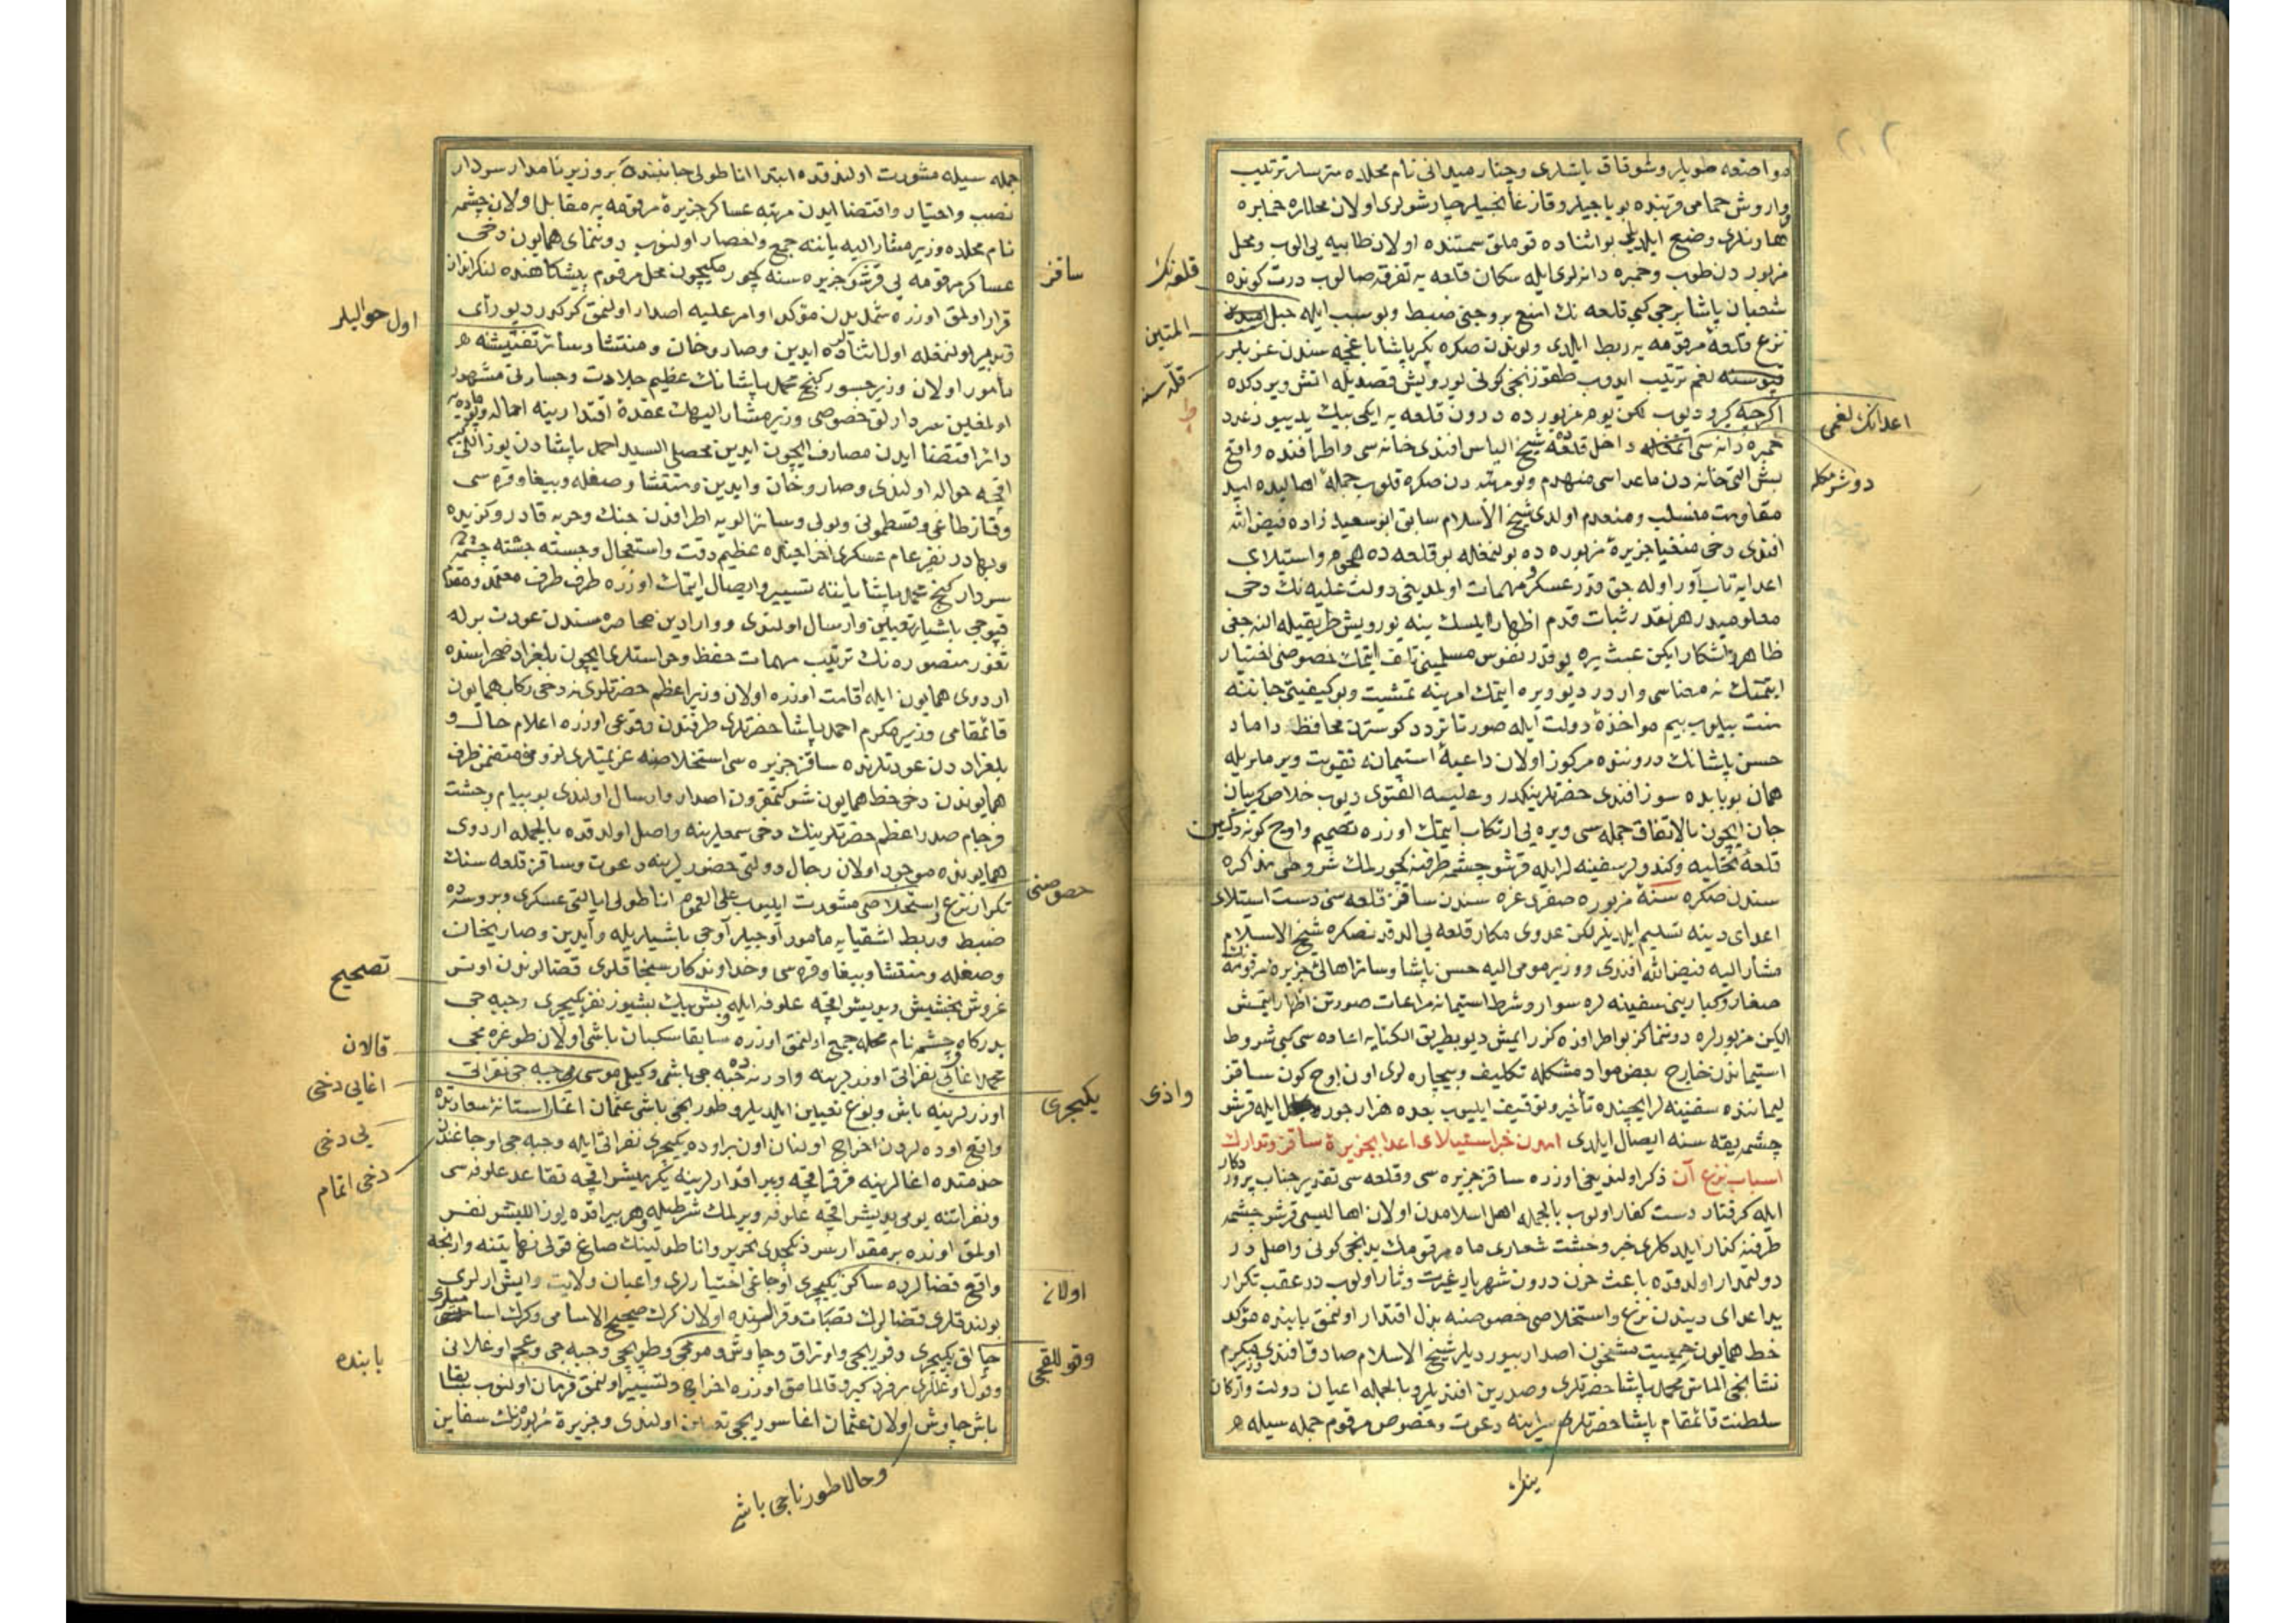 طوپلر وشوقاق باشلری وچنار میدانی نام محلده متریسلر ترتیب
واروش حمامی قربنده بویاجیلر وقازغانجیلر چارشولری اولان محللره خمبره
هاونلری وضع ایلدیلر بو اثناده قوملق سمتنده اولان طابیه یی الوب ومحل
مزبوردن طوب وخمبره دانه لری ایله سکان قلعه یه تفرقه صالوب درت کونده
شعبان پاشا برجی کبی قلعه نك امنع بروجنی ضبط وبو سبب ایله حبل
نزع قلعه مرقومه یه ربط ایلدی وبوندن صکره بکر پاشا باغچه سندن
لغم ترتیب ایدوب طقوزنجی کونی یورویش قصدیله اتش ویردکده
اکرچه کیرو دپوب لکن یوم مزبورده درون قلعه یه ایکی بیك یدییوز عدد
خمبره دانه سی داخل قلعه ده شیخ الیاس افندی خانه سی واطرافنده واقع
بش التی خانه دن ماعداسی منهدم وبو مرتبه دن صکره قلوب جمله اهالیده امید
مقاومت منسلب ومنعدم اولدی شیخ الاسلام سابق ابو سعید زاده فیض الله
افندی دخی منفیا جزیره مزبوره ده بولنمغله بو قلعه ده هجوم واستیلای
اعدایه تاب آور اوله جق قدر عسکر ومهمات اولمدیغی دولت علیه نك دخی
معلومیدر هر نقدر ثبات قدم اظهار ایلسك ینه یورویش طریقیله النه جغی
ظاهر وآشکار ایکن عبث یره بو قدر نفوس مسلمینی تلف ایتمك خصوصنی اختیار
ایتمنك نه معناسی واردر دیو ویره ایتمك امرینه تمشیت وبو کیفیتی جاننه
منت بیلوب بیم مواخذه دولت ایله صورتا تردد کوسترن محافظ داماد
حسن پاشانك دروننده مرکوز اولان داعیه استیمانه تقویت ویرملریله
همان بو بابده سوز افندی حضرتلرینکدر وعلیه الفتوی دیوب خلاص کریبان
جان ایچون بالاتفاق جمله سی ویره یی ارتکاب ایتمك اوزره تصمیم واوچ کونه دکین
قلعه تخلیه وکندولر سفینه لر ایله قرشو چشمه طرفنه کچورلمك شروطی مذاکره
سندن صکره سنه مزبوره صفری غره سندن ساقز قلعه سنی دست استیلای
اعدای دینه تسلیم ایلدیلر لکن عدوی مکار قلعه یی الدقدنصکره شیخ الاسلام
مشار الیه فیض الله افندی ووزیر مومی الیه حسن پاشا وسائر اهالئ جزیره مرقومه نك
صغار وکبارینی سفینه لره سوار وشرط استیمانه مراعات صورتن اظهار ایتمش
لکن مزبورلره دونماکز بو اطرافده کزر ایمش دیو بطریق الکنایه اعاده سی کبی شروط
استیماندن خارج بعض مواد مشکله تکلیف وبیچاره لری اون اوچ کون ساقز
لیماننده سفینه لر ایچینده تأخیر وتوقیف ایلیوب بعده هزار جور ایله قرشو
چشمه یقه سنه ایصال ایلدی امدن خبر استیلای اعدا بجزیره ساقز وتدارك
اسباب نزع آن ذکر اولندیغی اوزره ساقز جزیره سی وقلعه سی تقدیر جناب پروردکار
ایله کرفتار دست کفار اولوب بالجمله اهل اسلامدن اولان اهالیسی قرشو چشمه
طرفنه کذار ایلدکلری خبر وحشت شعاری ماه مرقومك یدنجی کونی واصل در
دولتمدار اولدقده باعث حزن درون شهریار غیرت دثار اولوب درعقب تکرار
ید اعدای دیندن نزع واستخلاصی خصوصنه بذل اقتدار اولنمق بابنده مؤکد
خط همایون حمیت مشحون اصدار بیوردیلر شیخ الاسلام صادق افندی ووزیر مکرم
نشانجی الماس محمد پاشا حضرتلری وصدرین افندیلر وبالجمله اعیان دولت وارکان
سلطنت قائمقام پاشا حضرتلری سراینه دعوت وخصوص مرقوم جمله سیله
قلعه نك
المتین
قله سنه
ط
اعدانك لغمی
دوشرمکله
واذی
ینه
جمله سیله مشورت اولندقده ابتدا اناطولی جانبنده بر وزیر نامدار سردار
نصب واختیار واقتضا ایدن مرتبه عساکر جزیره مرقومه یه مقابل اولان چشمه
نام محلده وزیر مشار الیه یاننه جمع واحضار اولنوب دونمای همایون دخی
عساکر مرقومه یی قرشو جزیره سنه کچورمکیچون محل مرقوم پیشکاهنده لنکرانداز
قرار اولمق اوزره شملیدن مؤکد اوامر علیه اصدار اولنمق کرکدر دیو رأی
وتدبیر اولنمغله اول اثناده ایدین وصاروخان ومنتشا وسائر تفتیشنه
مأمور اولان وزیر جسور کنج محمد پاشانك عظیم جلادت وجسارتی مشهور
اولمغین سردارلق خصوصی وزیر مشار الیهك عقده اقتدارینه احاله وبو ماده یه
دائر اقتضا ایدن مصارف ایچون ایدین محصلی السید احمد پاشادن یوز اللی کیسه
اقچه حواله اولندی وصاروخان وایدین ومنتشا وصغله وبیغا وقره سی
وقاز طاغی وقسطمونی وبولی وسائر الویه اطرافدن جنك وحربه قادر وکزیده
وبهادر نفیر عام عسکری اخراجینده عظیم دقت واستعجال وجسته جسته چشمه ده
سردار کنج محمد پاشا یاننه تسییر وایصال ایتمك اوزره طرف طرف معتمد ومقدم
قپوجی باشیلر تعیین وارسال اولندی ووارادین محاصره سندن عودت برله
ثغور منصوره نك ترتیب مهمات حفظ وحراستلری ایچون بلغراد صحراسنده
اردوی همایون ایله اقامت اوزره اولان وزیر اعظم حضرتلرینه دخی رکاب همایون
قائمقامی وزیر مکرم احمد پاشا حضرتلری طرفندن وقوعی اوزره اعلام حال و
بلغراددن عودتلرنده ساقز جزیره سی استخلاصنه عزیمتلری لزومی متضمن طرف
همایوندن دخی خط همایون شوکتمقرون اصدار وارسال اولندی بو پیام وحشت
فرجام صدر اعظم حضرتلرینك دخی سمعلرینه واصل اولدقده بالجمله اردوی
همایونده موجود اولان رجال دولتی حضورلرینه دعوت وساقز قلعه سنك
تکرار نزع واستخلاصی مشورت ایلیوب علی العموم اناطولی ایالتی عسکری وبروسه ده
ضبط وربط اشقیایه مأمور اوجیلر آوجی باشیلریله وآیدین وصاریخان
وصغله ومنتشا وبیغا وقره سی وخداوندکار سنجاقلری قضالرندن اوتوز
غروش بخشیش ویدیشر اقچه علوفه ایله بش بیك بشیوز نفر یکیچری وجبه جی
بدرکاه وچشمه نام محله جمع اولنمق اوزره سابقا سکبان باشی اولان طوغره مجی
محمد اغانك نفراتی اوزرلرینه وادرنه ده جبه جی باشی وکیلی موسی جبه جی نفراتی
اوزرلرینه باش وبوغ تعیین ایلدیلر وطورنجی باشی عثمان اغا استانه سعادتده
واقع اوده لردن اخراج اولنان اون بر اوده یکیچری نفراتی ایله وجبه جی اوجاغندن
خدمتده اغالرینه قرقر اقچه وبیرقدارلرینه یکرمیشر اقچه تقاعد علوفه سی
ونفراتنه یومی یدیشر اقچه علوفه ویرلمك شرطیله وهر بیراقده یوز اللیشر نفس
اولمق اوزره بر مقدار سردنکچدی تحریر واناطولینك صاغ قولی نهایتنه وارنجه
واقع قضالرده ساکن یکیچری اوجاغی اختیارلری واعیان ولایت وایش ارلری
بولندقلری قضالرك قصبات وقراسنده اولان کرك صحیح الاسامی وکرك اسامیسی
چالق یکیچری وقوریجی واوتراق وچاوش ومومجی وطوپجی وجبه جی وعجم اوغلانی
وقول اوغللری بر فرد کیرو قالمامق اوزره اخراج وتسییر اولنمق فرمان اولنوب سابقا
باش چاوش اولان عثمان اغا سوریجی تعیین اولندی وجزیره مزبوره نك سفاین
ساقز
اول حوالیلر
خصوصنی
تصحیح
قالان
اغایی دخی
یکیچری
یی دخی
دخی اتمام
اولان
وقوللقجی
بابنده
وحالا طورناجی باشی